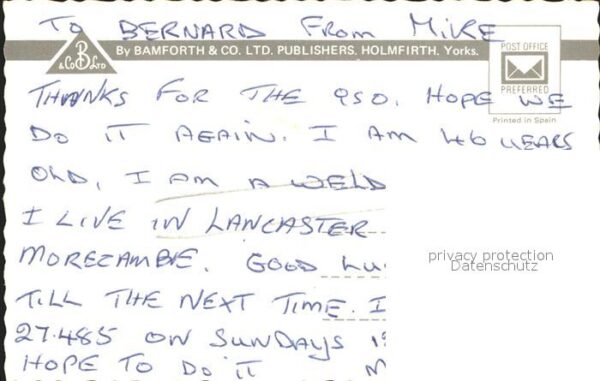 TO BERNARD FROM MIKE
By BAMFORTH & CO. LTD. PUBLISHERS. HOLMFIRTH, Yorks.
B
& Co LTD
POST OFFICE
PREFERRED
Printed in Spain
THANKS FOR THE QSO. HOPE WE
DO IT AGAIN. I AM 46 YEARS
OLD, I AM A WELD
I LIVE IN LANCASTER
MORECAMBE. GOOD LU
privacy protection
Datenschutz
TILL THE NEXT TIME. I
27.485 ON SUNDAYS 19
HOPE TO DO IT M